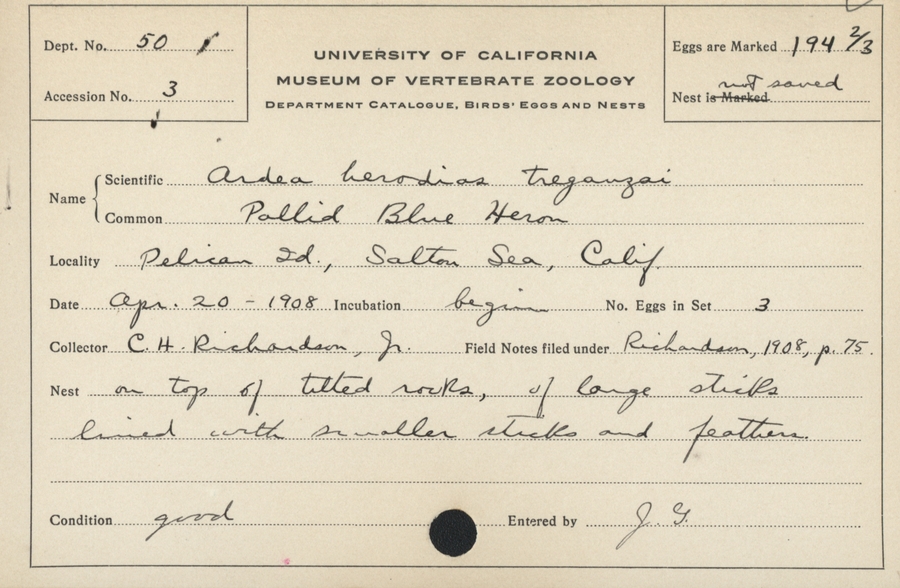 Dept. No. 50
UNIVERSITY OF CALIFORNIA
MUSEUM OF VERTEBRATE ZOOLOGY
DEPARTMENT CATALOGUE, BIRDS' EGGS AND NESTS
Accession No. 3
Eggs are Marked 194 2/3
not saved
Nest is Marked
Name
Scientific Ardea herodias treganzai
Common Pallid Blue Heron
Locality Pelican Id., Salton Sea, Calif.
Date Apr. 20 - 1908 Incubation begun No. Eggs in Set 3
Collector C. H. Richardson, Jr. Field Notes filed under Richardson, 1908, p. 75.
Nest on top of tilted rocks, of large sticks
lined with smaller sticks and feathers.
Condition good Entered by J. G.